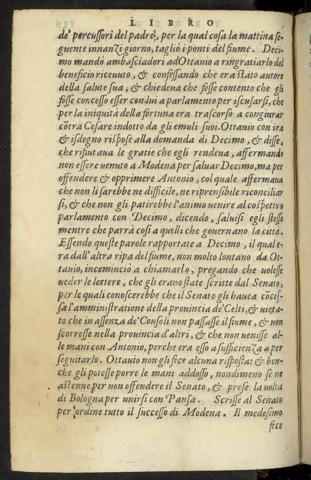 LIBRO
de' percussori del padre, per la qual cosa la mattina se-
guente innanzi giorno, tagliò i ponti del fiume. Deci-
mo mandò ambasciadori ad Ottauio a ringratiarlo del
beneficio riceuuto, & confessando che era stato autore
della salute sua, & chiedeua che fosse contento che gli
fosse concesso esser con lui a parlamento per iscusarsi, che
per la iniquita della fortuna era trascorso a congiurar
cōtra Cesare indotto da gli emuli suoi. Ottauio con ira
& isdegno rispose alla domanda di Decimo, & disse,
che rifiutaua le gratie che egli rendeua, affermando
non essere uenuto a Modena per saluar Decimo, ma per
offendere & opprimere Antonio, col quale affermaua
che non li sarebbe ne difficile, ne riprensibile riconciliar
si, & che non gli patirebbe l'animo uenire al cospetto o
parlamento con Decimo, dicendo, saluisi egli stesso
mentre che parrà così a quelli che gouernano la città.
Essendo queste parole rapportate a Decimo, il qual e-
ra dall'altra ripa del fiume, non molto lontano da Ot-
tauio, incominciò a chiamarlo, pregando che uolesse
ueder le lettere, che gli erano state scritte dal Senato,
per le quali conoscerebbe che il Senato gli hauea cōces-
sa l'amministratione della prouincia de' Celti, & uieta-
to che in assenza de' Consoli non passasse il fiume, & non
scorresse nella prouincia d'altri, & che non uenisse al-
le mani con Antonio, perche era esso a sufficienza a per
seguitarlo. Ottauio non gli fice alcuna risposta: & ben-
che gli potesse porre le mani addosso, nondimeno se ne
astenne per non offendere il Senato, & prese la uolta
di Bologna per unirsi con Pansa. Scrisse al Senato
per ordine tutto il successo di Modena. Il medesimo
fice